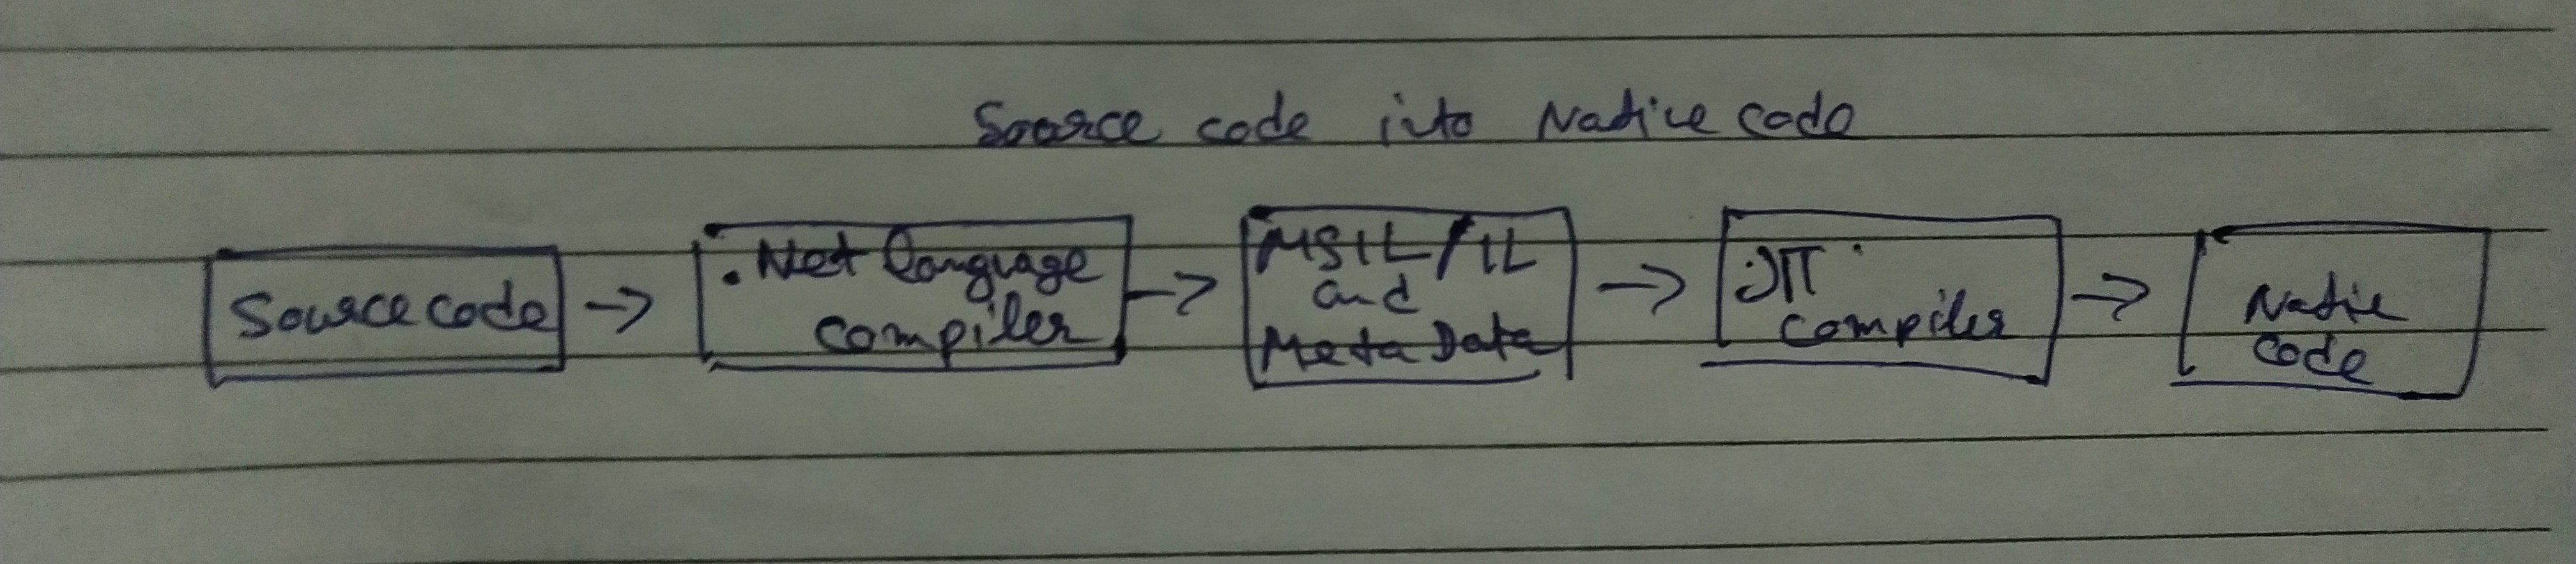 Source code into Native code
Source code
.Net language
compiler
MSIL/IL
and
Meta Data
JIT
compiler
Native
code